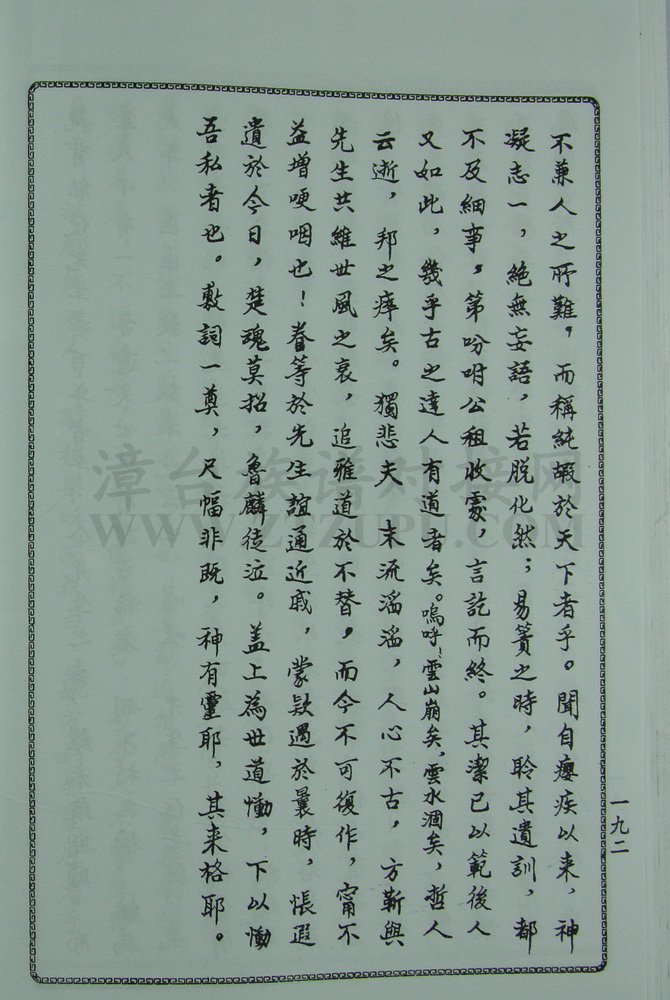 不兼人之所難，而稱純嘏於天下者乎。聞自癭疾以来，神
凝志一，絕無妄語，若脱化然；易簀之時，聆其遺訓，都
不及細事，第吩咐公租收處，言訖而終。其潔已以範後人
又如此，幾乎古之達人有道者矣。嗚呼！雲山崩矣，雲水涸矣，哲人
云逝，邦之瘁矣。獨悲夫 末流滔滔，人心不古，方靳與
先生共維世風之衰，追雅道於不替，而今不可復作，甯不
益增哽咽也！眷等於先生誼通近戚，蒙款遇於曩時，悵遐
遺於今日，楚魂莫招，魯麟徒泣。盖上為世道慟，下以慟
吾私者也。敷詞一奠，尺幅非既，神有靈耶，其来格耶。
一九二
漳台族谱对接网
WWW.ZTZUPU.COM